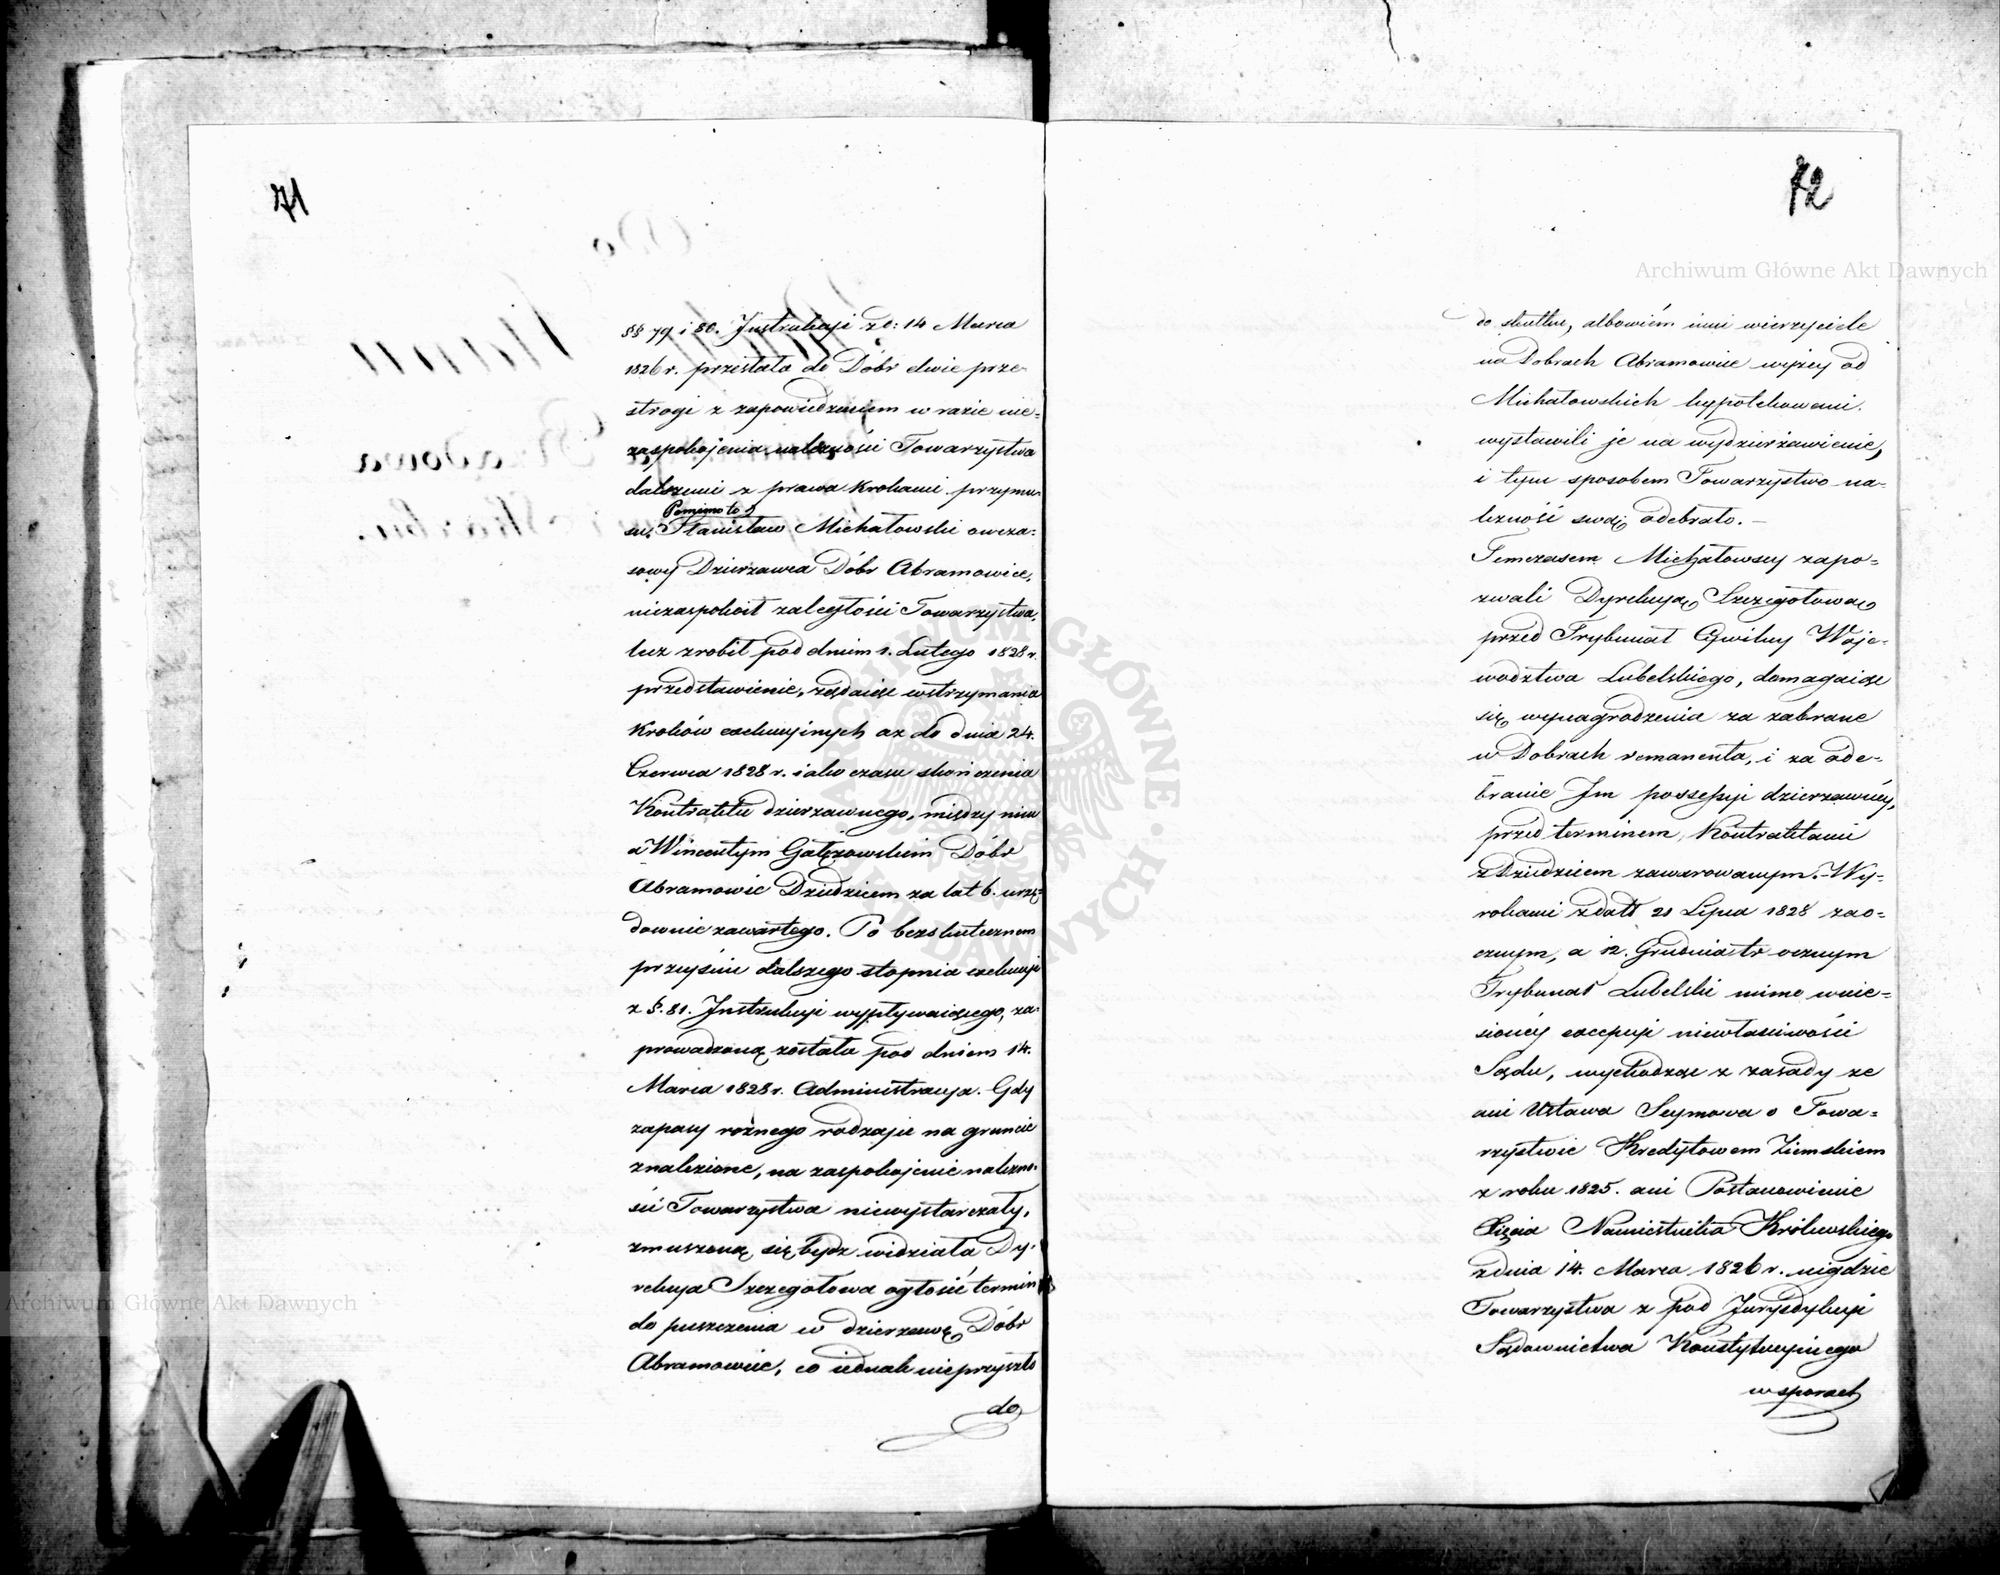 71
§§ 79 i 80. Instrukcji z d: 14 Marca
1826 r. przesłała do Dóbr dwie prze-
strogi z zapowiedzeniem w razie nie-
zaspokojenia należności Towarzystwa
dalszemi z prawa krokami przymu-
Pomimo to
su. Stanisław Michałowski owcza-
sowy Dzierżawca Dóbr Abramowice,
niezaspokoił zaległości Towarzystwa,
lecz zrobił pod dniem 1. Lutego 1828 r.
przedstawienie, żądaiąc wstrzymania
Kroków exekucyjnych aż do dnia 24.
Czerwca 1828 r. iako czasu skończenia
Kontraktu dzierżawnego, między nim
a Wincentym Gałęzowskim Dóbr
Abramowic Dziedzicem za lat 6. urzę-
downie zawartego. Po bezskutecznem
przejściu dalszego stopnia exekucji
z §. 81. Instrukcji wypływaiącego, za-
prowadzoną została pod dniem 14.
Marca 1828 r. Administracya. Gdy
zapasy rożnego rodzaju na gruncie
znalezione, na zaspokojenie należno-
ści Towarzystwa niewystarczały,
zmuszoną się bydź widziała Dy-
rekcya Szczegółowa ogłosić termin
do puszczenia w dzierżawę Dóbr
Abramowice, co iednak nieprzyszło
do
72
Archiwum Główne Akt Dawnych
do skutku, albowiem inni wierzyciele
na Dobrach Abramowice wyżey od
Michałowskich hypotekowani.
wystawili je na wydzierżawienie,
i tym sposobem Towarzystwo na-
leżność swoią odebrało. —
Temczasem Michałowscy zapo-
zwali Dyrekcyą Szczegółową
przed Trybunał Cywilny Woje-
wództwa Lubelskiego, domagaiąc
się wynagrodzenia za zabrane
w Dobrach remanenta, i za ode-
branie Im possessyi dzierżawnéy,
przed terminem Kontraktami
z Dziedzicem zawarowanym. - Wy-
rokami z dat 21 Lipca 1828 zao-
cznym, a 12. Grudnia tr ocznym
Trybunał Lubelski mimo wnie-
sionéy excepcyi niewłaściwości
Sądu, wychodząc z zasady że
ani Ustawa Seymowa o Towa-
rzystwie Kredytowem Ziemskiem
z roku 1825. ani Postanowienie
Xięcia Namiestnika Królewskiego
z dnia 14. Marca 1826 r. nigdzie
Towarzystwa z pod Jurysdykcyi
Sądownictwa Konstytucyjnego
w sporach
Archiwum Główne Akt Dawnych
ARCHIWUM GŁÓWNE AKT DAWNYCH